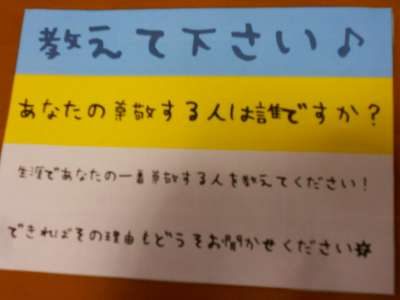 教えて下さい♪
あなたの尊敬する人は誰ですか？
生涯であなたの一番尊敬する人を教えてください！
できればその理由もどうぞお聞かせください☆